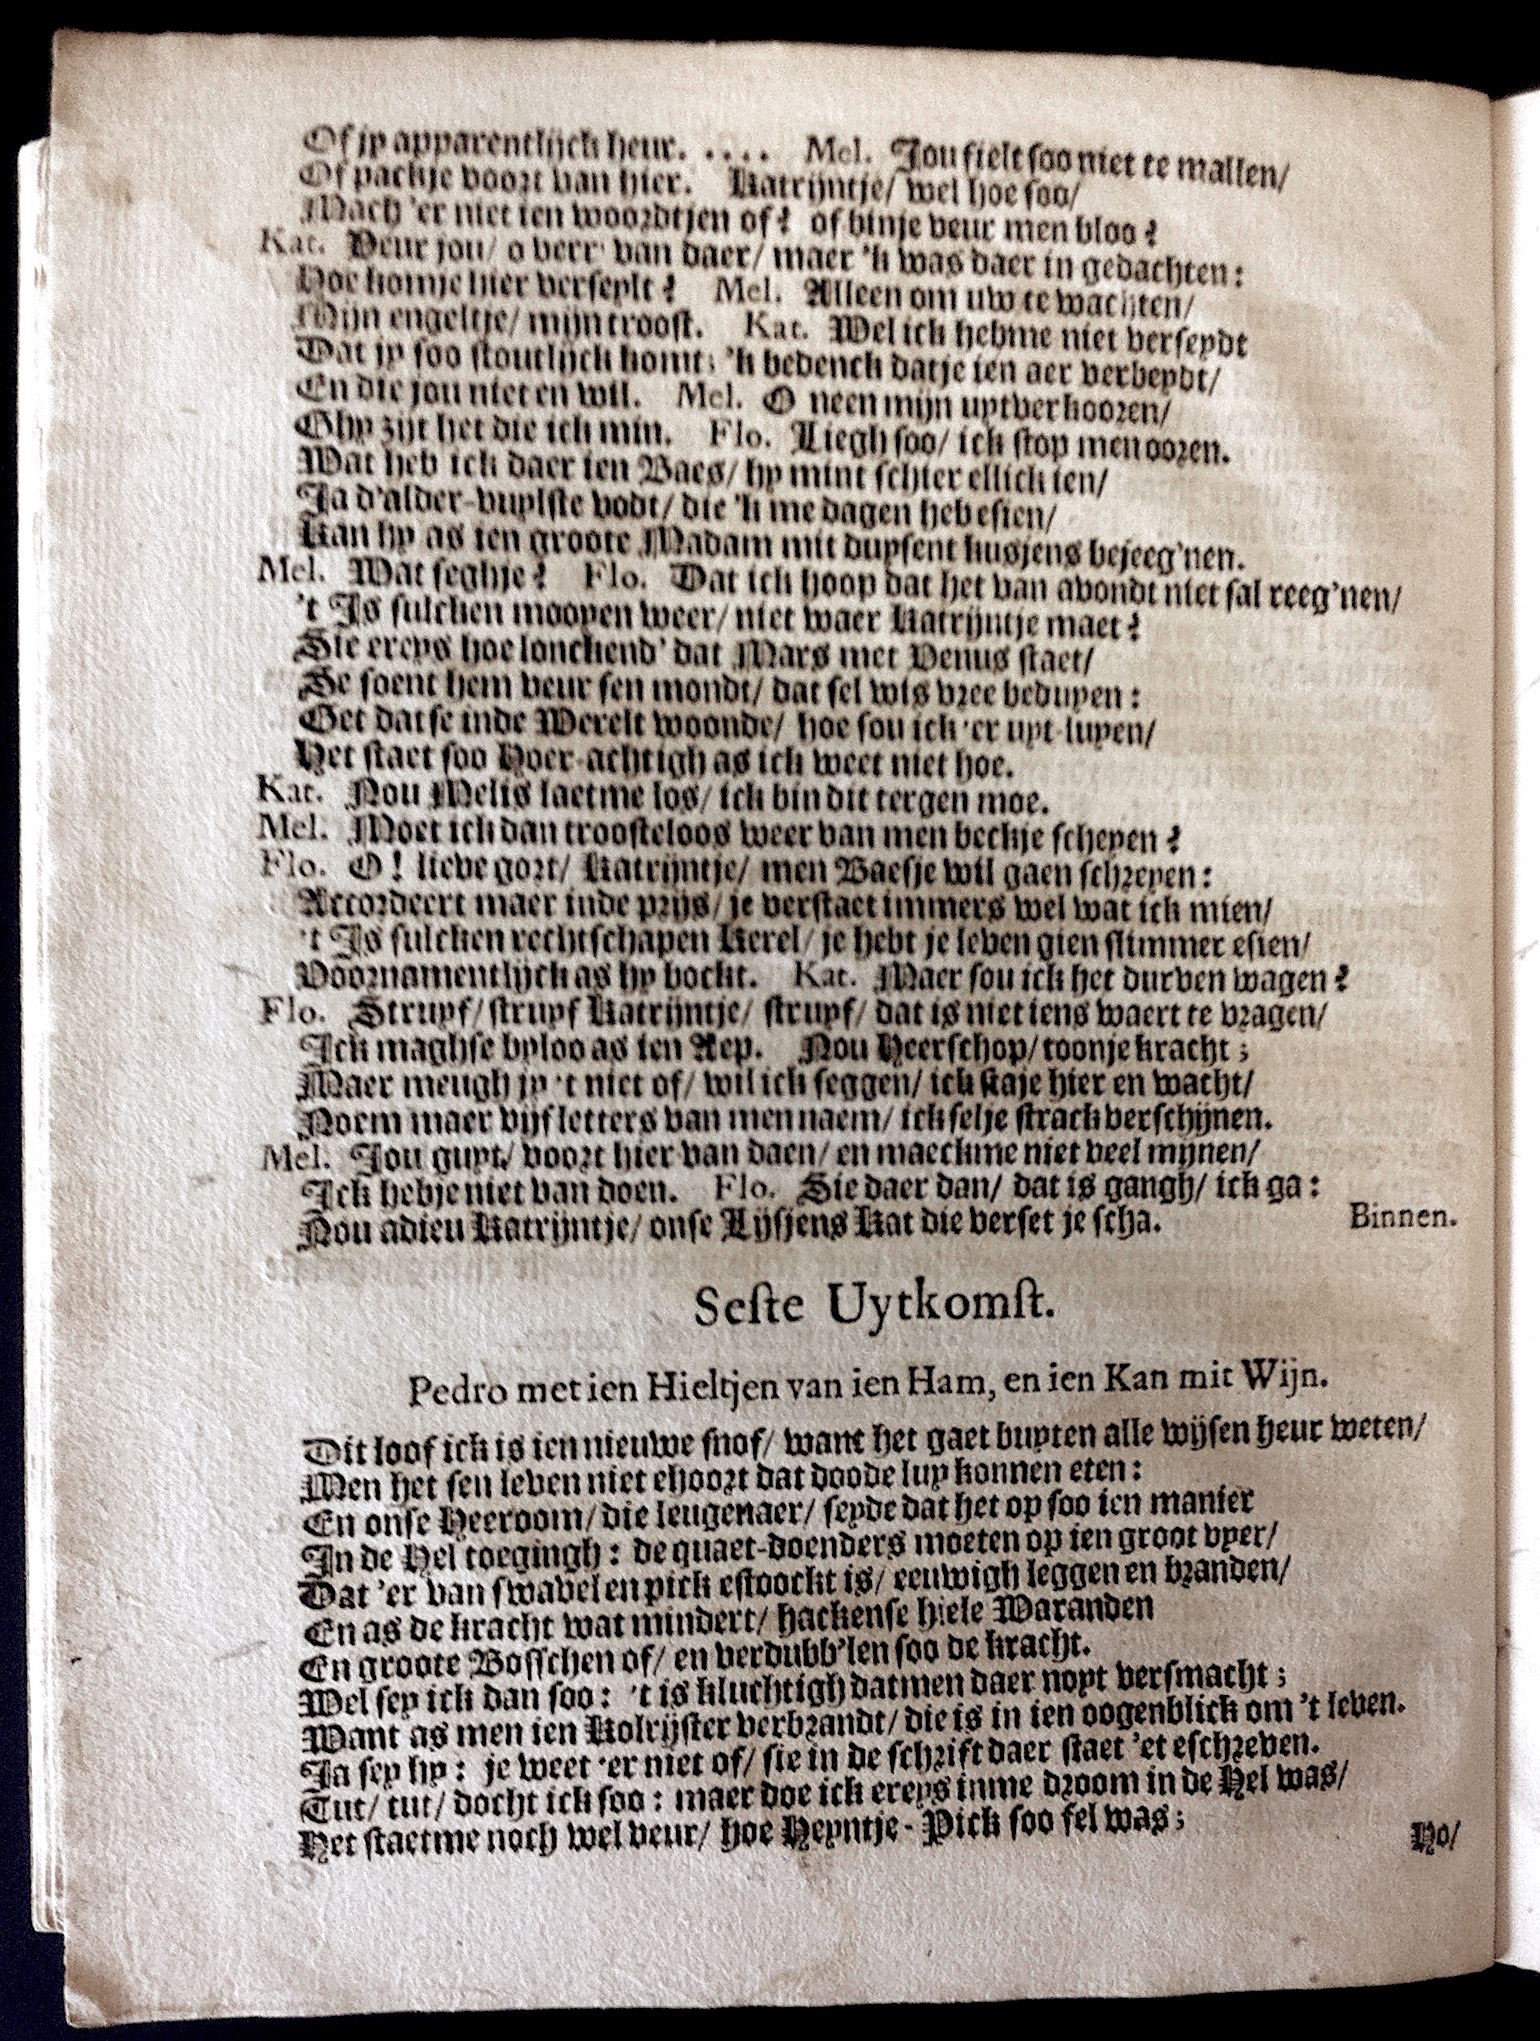 Of jy apparentlijck heur. . . . . Mel. Jou fielt soo niet te mallen/
Of packje voort van hier. Katrijntje/ wel hoe soo/
Mach 'er niet ien woordtjen of? of binje veur men bloo?
Kat. Veur jou/ o verr' van daer/ maer 'k was daer in gedachten:
Hoe komje hier verseylt? Mel. Alleen om uw te wachten/
Mijn engeltje/ mijn troost. Kat. Wel ick hebme niet verseydt
Dat jy soo stoutlijck komt; 'k bedenck datje ien aer verbeydt/
En die jou niet en wil. Mel. O neen mijn uytverkooren/
Ghy zijt het die ick min. Flo. Liegh soo/ ick stop men ooren.
Wat heb ick daer ien Baes/ hy mint schier ellick ien/
Ja d'alder-vuylste vodt/ die 'k me dagen heb esien/
Kan hy as ien groote Madam mit duysent kusjens bejeeg'nen.
Mel. Wat seghje? Flo. Dat ick hoop dat het van avondt niet sal reeg'nen/
't Is sulcken mooyen weer/ niet waer Katrijntje maet?
Sie ereys hoe lonckend' dat Mars met Venus staet/
Se soent hem veur sen mondt/ dat sel wis vree beduyen:
Get datse inde Werelt woonde/ hoe sou ick 'er uyt-luyen/
Het staet soo Hoer-achtigh as ick weet niet hoe.
Kat. Nou Melis laetme los/ ick bin dit tergen moe.
Mel. Moet ick dan troosteloos weer van men beckje scheyen?
Flo. O! lieve gort/ Katrijntje/ men Baesje wil gaen schreyen:
Accordeert maer inde prijs/ je verstaet immers wel wat ick mien/
't Is sulcken rechtschapen Kerel/ je hebt je leven gien slimmer esien/
Voornamentlijck as hy bockt. Kat. Maer sou ick het durven wagen?
Flo. Struyf/ struyf Katrijntje/ struyf/ dat is niet iens waert te vragen/
Ick maghse byloo as ien Aep. Nou Heerschop/ toonje kracht;
Maer meugh jy 't niet of/ wil ick seggen/ ick staje hier en wacht/
Noem maer vijf letters van men naem/ ick selje strack verschijnen.
Mel. Jou guyt/ voort hier van daen/ en maeckme niet veel mijnen/
Ick hebje niet van doen. Flo. Sie daer dan/ dat is gangh/ ick ga:
Nou adieu Katrijntje/ onse Lijsjens Kat die verset je scha. Binnen.
Seste Uytkomst.
Pedro met ien Hieltjen van ien Ham, en ien Kan mit Wijn.
Dit loof ick is ien nieuwe snof/ want het gaet buyten alle wijsen heur weten/
Men het sen leven niet ehoort dat doode luy konnen eten:
En onse Heeroom/ die leugenaer/ seyde dat het op soo ien manier
In de Hel toegingh: de quaet-doenders moeten op ien groot vyer/
Dat 'er van swavel en pick estoockt is/ eeuwigh leggen en branden/
En as de kracht wat mindert/ hackense hiele Waranden
En groote Bosschen of/ en verdubb'len soo de kracht.
Wel sey ick dan soo: 't is kluchtigh datmen daer noyt versmacht;
Want as men ien Kolrijster verbrandt/ die is in ien oogenblick om 't leven.
Ja sey hy: je weet 'er niet of/ sie in de schrift daer staet 'et eschreven.
Tut/ tut/ docht ick soo: maer doe ick ereys inme droom in de Hel was/
Het staetme noch wel veur/ hoe Heyntje-Pick soo fel was;
Ho/